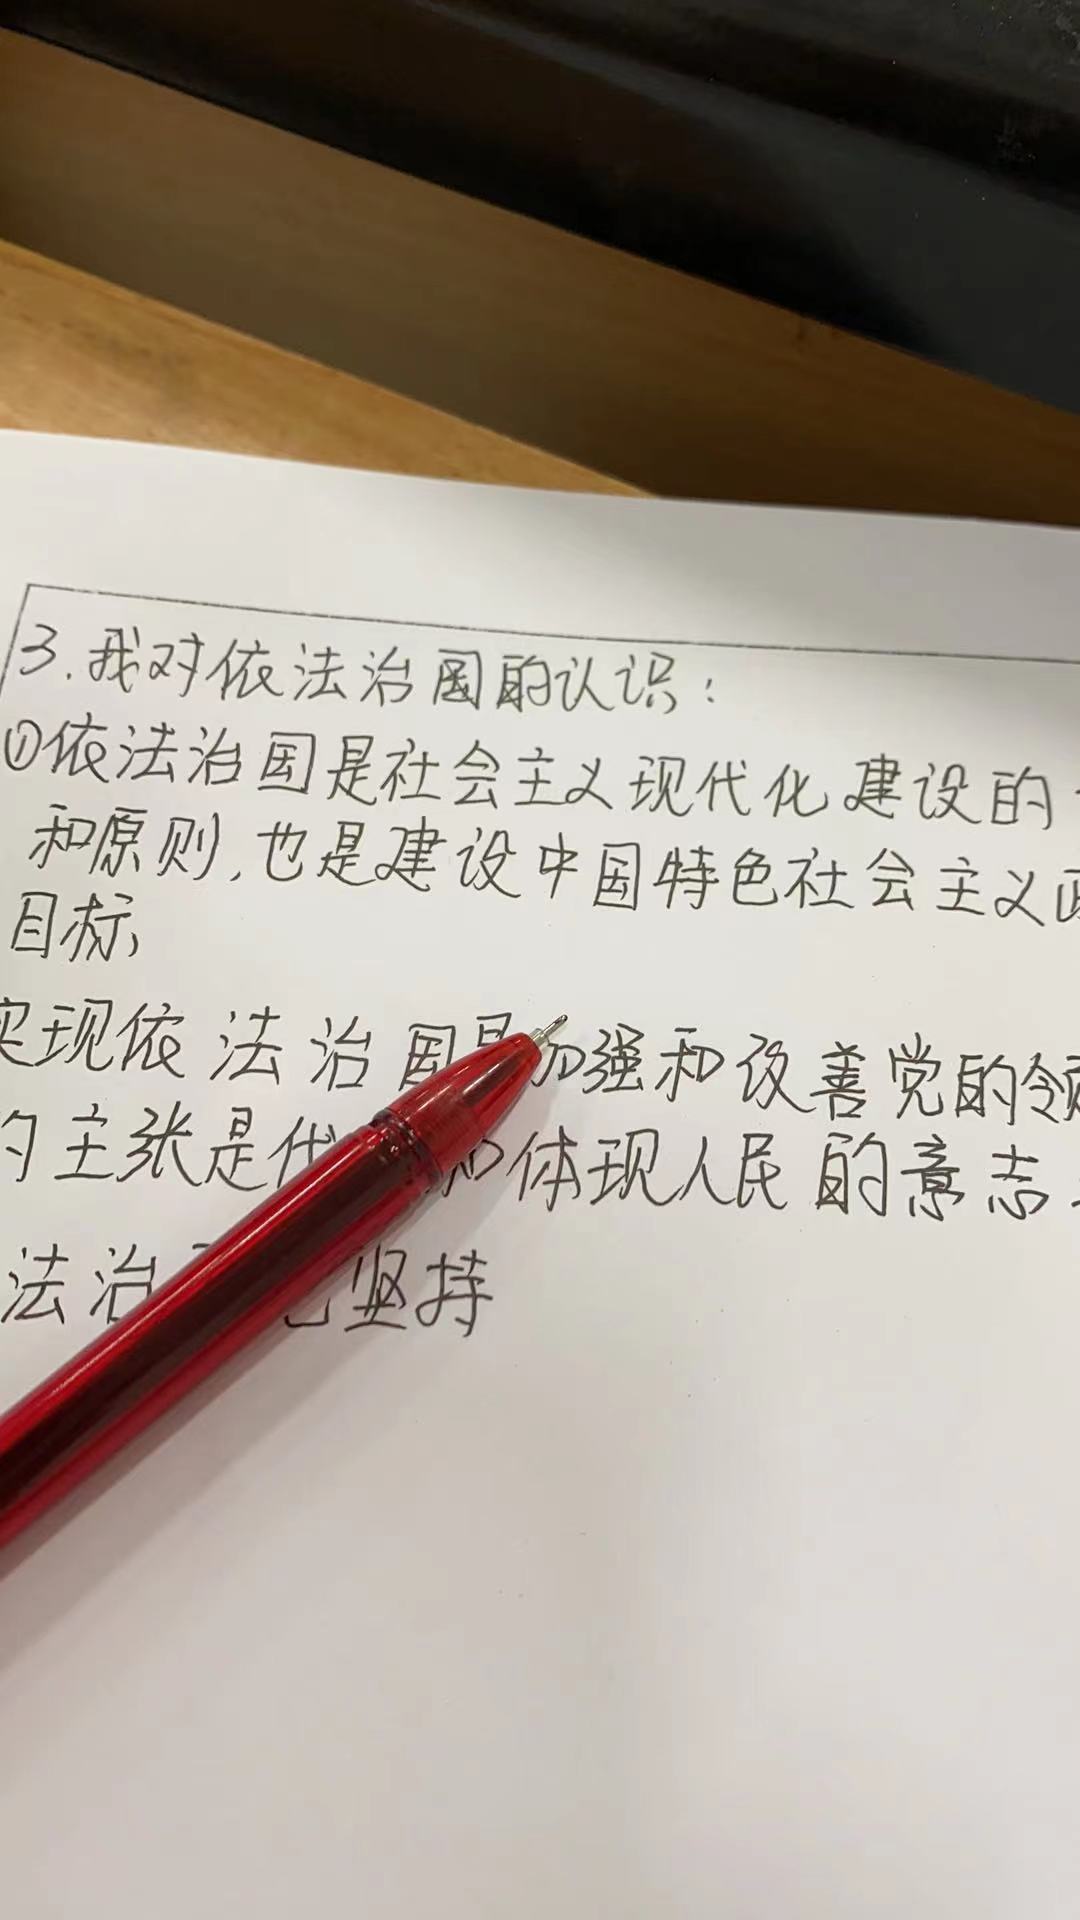 3.我对依法治国的认识:
①依法治国是社会主义现代化建设的
和原则,也是建设中国特色社会主义
目标,
实现依法治国是加强和改善党的领
的主张是代 和体现人民的意志
法治 坚持